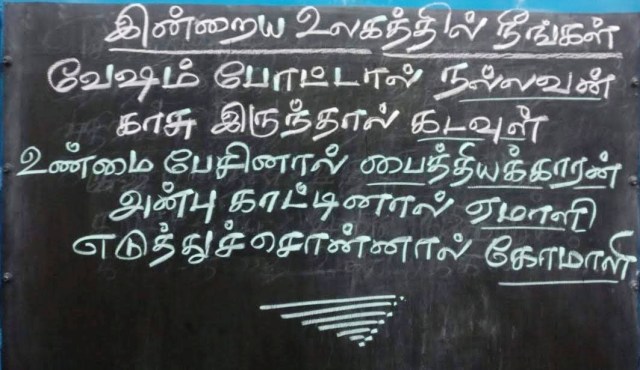 இன்றைய உலகத்தில் நீங்கள்
வேஷம் போட்டால் நல்லவன்
காசு இருந்தால் கடவுள்
உண்மை பேசினால் பைத்தியக்காரன்
அன்பு காட்டினால் ஏமாளி
எடுத்துச்சொன்னால் கோமாளி